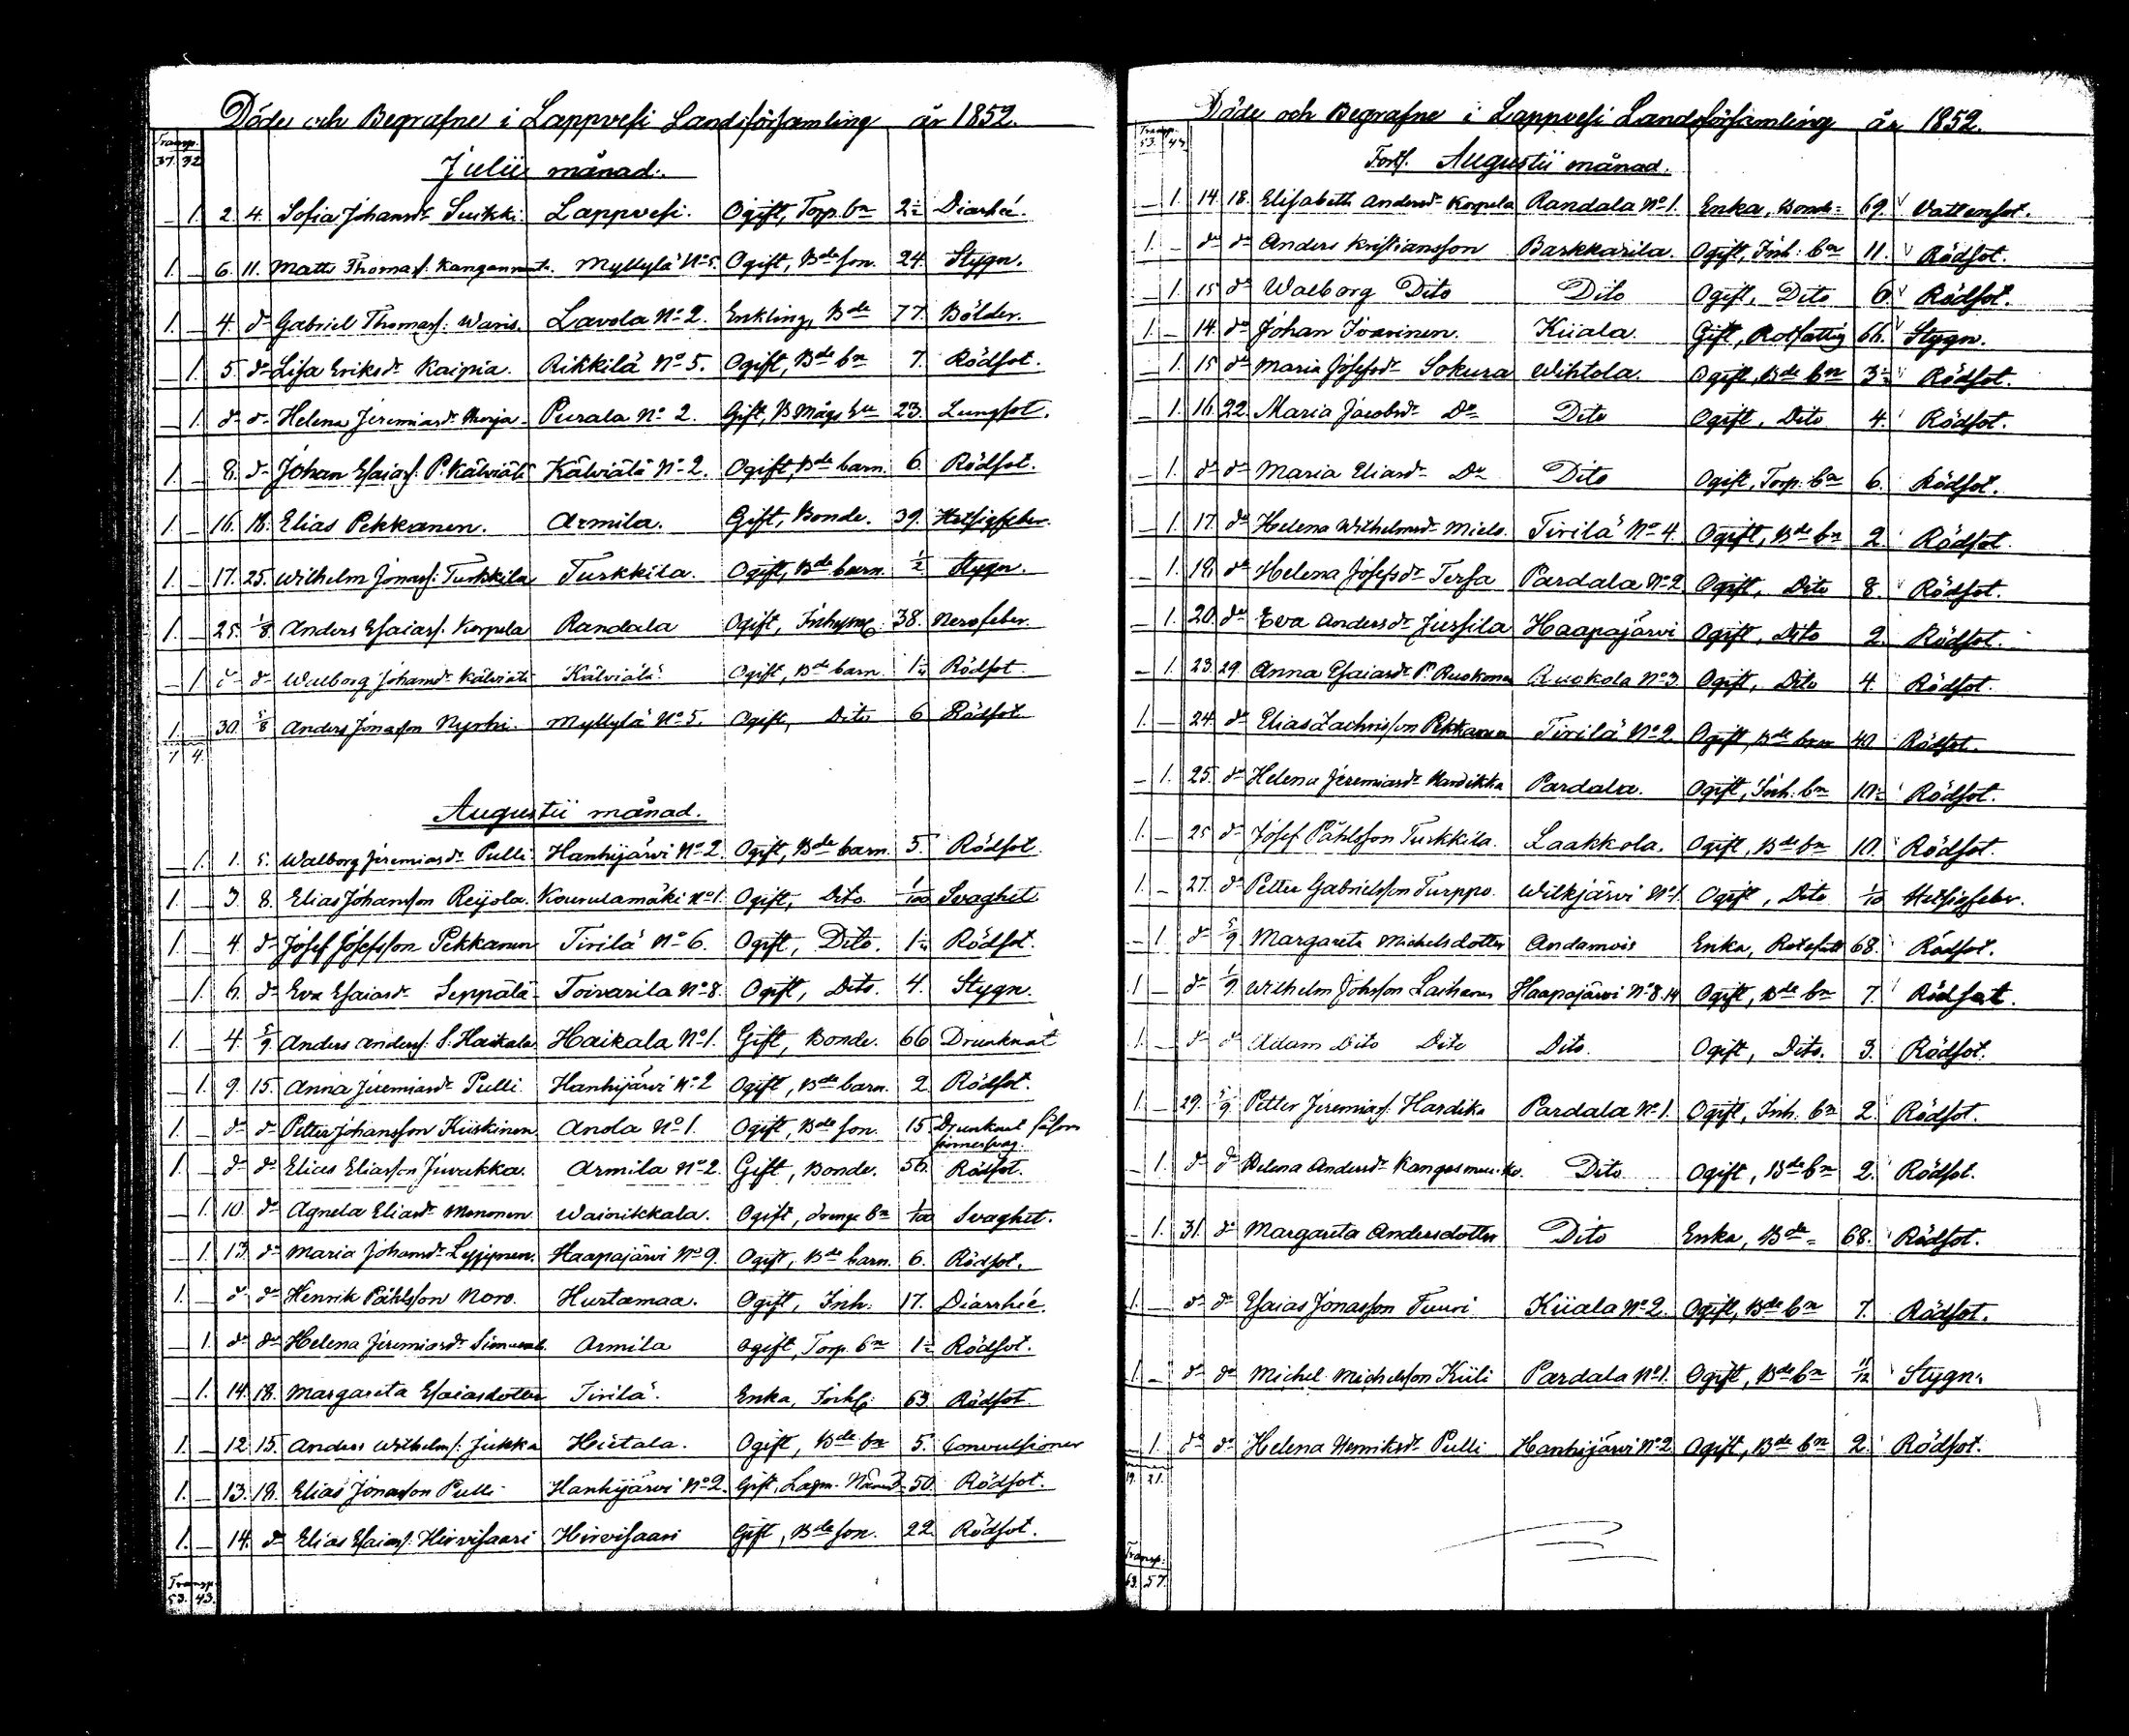 Döde och Begrafne i Lappvesi Landsförsamling år 1852.
Transp.
37. 32
Julii månad.
— 1. 2. 4. Sofia Johansdr Suikki. Lappvesi. Ogift, Torp. bn 2½ Diarhé.
1. — 6. 11. Matts Thomass: Kangasmuts. Myllylä No 5. Ogift, Bde son. 24. Stygn.
1. — 4. do Gabriel Thomass: Waris. Lavola No 2. Enkling, Bde 77. Bölder.
— 1. 5. do Lisa Eriksdr Kaipia. Rikkilä No 5. Ogift, Bde bn 7. Rödsot.
— 1. do do Helena Jeremiasdr Morja. Peurala No 2. Gift, B Mågs hu 23. Lungsot.
1. — 8. do Johan Esaiass: P. Kälviäi Kälviälä No 2. Ogift, Bde barn. 6. Rödsot.
1. — 16. 18. Elias Pekkanen. Armila. Gift, Bonde. 39. Hetsigfeber.
1. — 17. 25. Wilhelm Jonass: Turkkila Turkkila. Ogift, Bde barn. ½ Stygn.
1. — 25. 1/8 Anders Esaiass: Korpela Randala Ogift, Inhysing 38. Nervfeber.
— 1. do do Walborg Johansdr Kälviäi Kälviälä Ogift, Bde barn. 1¼ Rödsot.
1. — 30. 5/8 Anders Jonasson Nyrhi. Myllylä No 5. Ogift, Dito 6 Rödsot.
7 4.
Augustii månad.
— 1. 1. 5. Walborg Jeremiasdr Pulli Hanhijärvi No 2. Ogift, Bde barn. 5. Rödsot.
1. — 3. 8. Elias Johansson Reijola. Kourulamäki No 1. Ogift, Dito. 1/100 Svaghet.
1. — 4. do Josef Josefsson Pekkanen Tirilä No 6. Ogift, Dito. 1¼ Rödsot.
— 1. 6. do Eva Esaiasdr Seppälä Toivarila No 8. Ogift, Dito. 4. Stygn.
1. — 4. 5/9. Anders Anderss: S: Haikala Haikala No 1. Gift, Bonde. 66 Drunknat
— 1. 9. 15. Anna Jeremiasdr Pulli Hanhijärvi No 2 Ogift, Bde barn. 2. Rödsot.
1. — do do Petter Johansson Kiiskinen. Anola No 1. Ogift, Bde son. 15 Drunknat såsom
sinnessvag.
1. — do do Elias Eliasson Juvakka. Armila No 2. Gift, Bonde. 56. Rödsot.
— 1. 10. do Agneta Eliasdr Mononen Wainikkala. Ogift, drengs bn 1/100 Svaghet.
— 1. 13. do Maria Johansdr Lyijynen. Haapajärvi No 9. Ogift, Bde barn. 6. Rödsot.
1. — do do Henrik Påhlsson Noro. Hurtamaa. Ogift, Inh: 17. Diarrhée.
— 1. do do Helena Jeremiasdr Armila Ogift, Torp. bn 1½ Rödsot.
— 1. 14. 18. Margareta Esaiasdotter Tirilä. Enka, Inhs: 63. Rödsot
1. — 12. 15. Anders Wilhelms: Jukka Hietala. Ogift, Bde bn 5. Convulsioner
1. — 13. 18. Elias Jonasson Pulli Hanhijärvi No 2. Gift, Lagm. Nämd. 50. Rödsot.
1. — 14. do Elias Esaiass: Hirvisaari Hirvisaari Gift, Bde son. 22. Rödsot.
Transp:
53. 43.
Döde och Begrafne i Lappvesi Landsförsamling år 1852.
Transp.
53. 43
Forts. Augustii månad.
— 1. 14. 18. Elisabeth Andersdr Korpela Randala No 1. Enka, Bonde- 69. Vattensot.
1. — do do Anders Kristiansson Barkkarila. Ogift, Inh: bn 11. Rödsot.
— 1. 15 do Walborg Dito Dito Ogift, Dito 6 Rödsot.
1. — 14. do Johan Ivarinen. Kiiala. Gift, Rotfattig 66. Stygn.
— 1. 15 do Maria Josefsdr Sokura Wihtola. Ogift, Bde bn 3½ Rödsot.
— 1. 16. 22. Maria Jacobsdr Do Dito Ogift, Dito 4. Rödsot.
— 1. do do Maria Eliasdr Do Dito Ogift, Torp. bn 6. Rödsot.
— 1. 17. do Helena Wilhelmsdr Miels. Tirilä No 4. Ogift, Bde bn 2. Rödsot
— 1. 18. do Helena Josefsdr Tersa Pardala No 2. Ogift, Dito 8. Rödsot.
— 1. 20. do Eva Andersdr Jussila Haapajärvi Ogift, Dito 2. Rödsot.
— 1. 23. 29. Anna Esaiasdr P. Ruokonen Ruokola No 3. Ogift, Dito 4. Rödsot.
1. — 24. do Elias Zachrisson Pekkanen Tirilä No 2. Ogift, Bde bn Rödsot.
— 1. 25. do Helena Jeremiasdr Hardikka Pardala. Ogift, Inh: bn 10½ Rödsot.
1. — 25 do Josef Påhlsson Turkkila. Laakkola. Ogift, Bde bn 10. Rödsot.
1. — 27. do Petter Gabrielsson Turppo. Wilkjärvi No 1. Ogift, Dito 1/10 Hetsigfeber.
— 1. do 5/9 Margareta Michelsdotter Andamois Enka, Rotefatt 68. Rödsot.
1. — do 1/9. Wilhelm Johsson Laihanen Haapajärvi No 8.14 Ogift, Bde bn 7. Rödsot.
1. — do do Adam Dito Dito Dito. Ogift, Dito. 3. Rödsot.
1. — 29. 5/9. Petter Jeremias: Hardika Pardala No 1. Ogift, Inh. bn 2. Rödsot.
— 1. do do Helena Andersdr Kangasmuuko. Dito Ogift, Bde bn 2. Rödsot.
— 1. 31. do Margareta Andersdotter Dito Enka, Bde- 68. Rödsot.
1. — do do Esaias Jonasson Tuuri Kiiala No 2. Ogift, Bde bn 7. Rödsot.
1. — do do Michel Michelsson Kiili Pardala No 1. Ogift, Bde bn 11/12 Stygn.
— 1. do do Helena Henriksdr Pulli Hanhijärvi No 2 Ogift, Bde bn 2. Rödsot.
19. 21.
Transp:
63. 57.